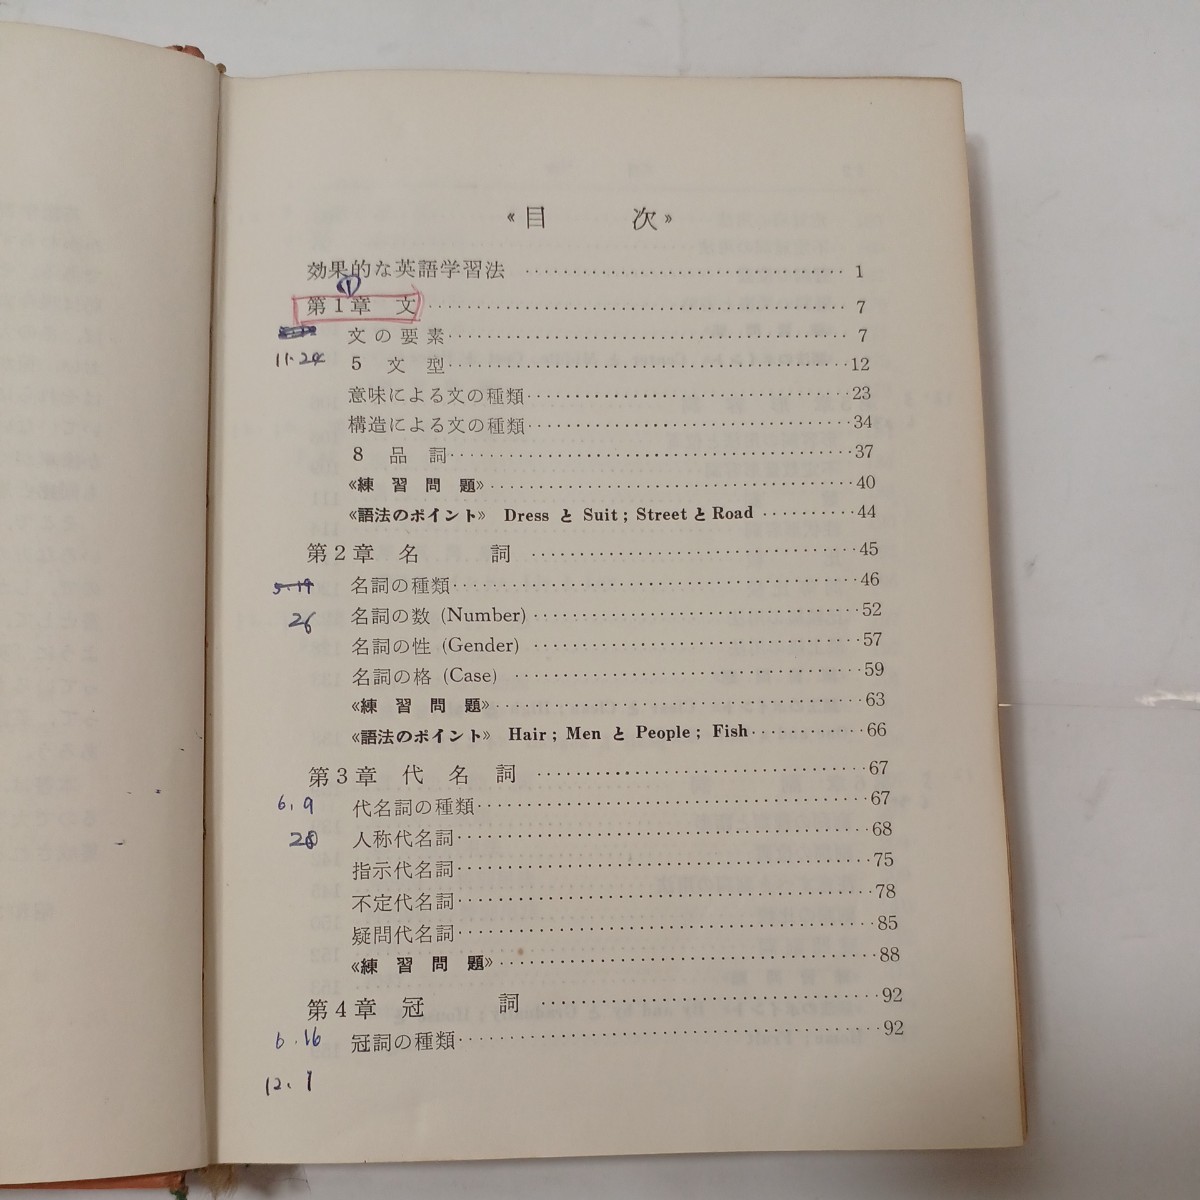 《目 次》
効果的な英語学習法 …… 1
第1章 文 …… 7
①
文の要素 …… 7
11.24
5 文 型 …… 12
意味による文の種類 …… 23
構造による文の種類 …… 34
8 品 詞 …… 37
《練習問題》 …… 40
《語法のポイント》 Dress と Suit ; Street と Road …… 44
第2章 名 詞 …… 45
5.19 名詞の種類 …… 46
26 名詞の数 (Number) …… 52
名詞の性 (Gender) …… 57
名詞の格 (Case) …… 59
《練習問題》 …… 63
《語法のポイント》 Hair ; Men と People ; Fish …… 66
第3章 代 名 詞 …… 67
6.9 代名詞の種類 …… 67
28 人称代名詞 …… 68
指示代名詞 …… 75
不定代名詞 …… 78
疑問代名詞 …… 85
《練習問題》 …… 88
第4章 冠 詞 …… 92
6.16 冠詞の種類 …… 92
12.1